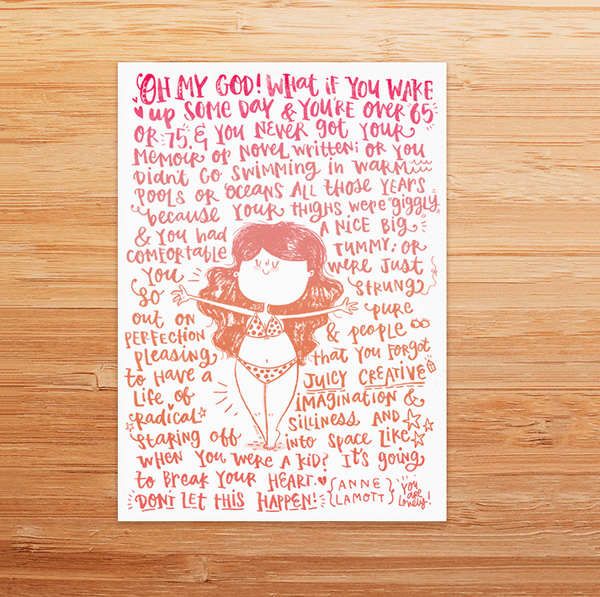 OH MY GOD! WHAT iF YOU WAKE
up SOME DAY & YOU'RE OVER 65
OR 75, & YOU NEVER GOT YOUR
MEMOIR OR NOVEL WRITTEN; OR YOU
DIDN'T GO SWIMMING IN WARM
POOLS OR OCEANS ALL THOSE YEARS
because YOUR THIGHS WERE GIGGLY
& YOU HAD A NICE BIG
COMFORTABLE TUMMY; OR
YOU WERE JUST
SO STRUNG
OUT ON PURE
PERFECTION & PEOPLE
PLEASING THAT YOU FORGOT
TO HAVE A JUICY CREATIVE
LIFE OF IMAGINATION &
RADICAL SILLINESS AND
STARING OFF INTO SPACE LIKE
WHEN YOU WERE A KID? IT'S GOING
TO BREAK YOUR HEART.
DON'T LET THIS HAPPEN! {ANNE LAMOTT} YOU ARE LOVELY!